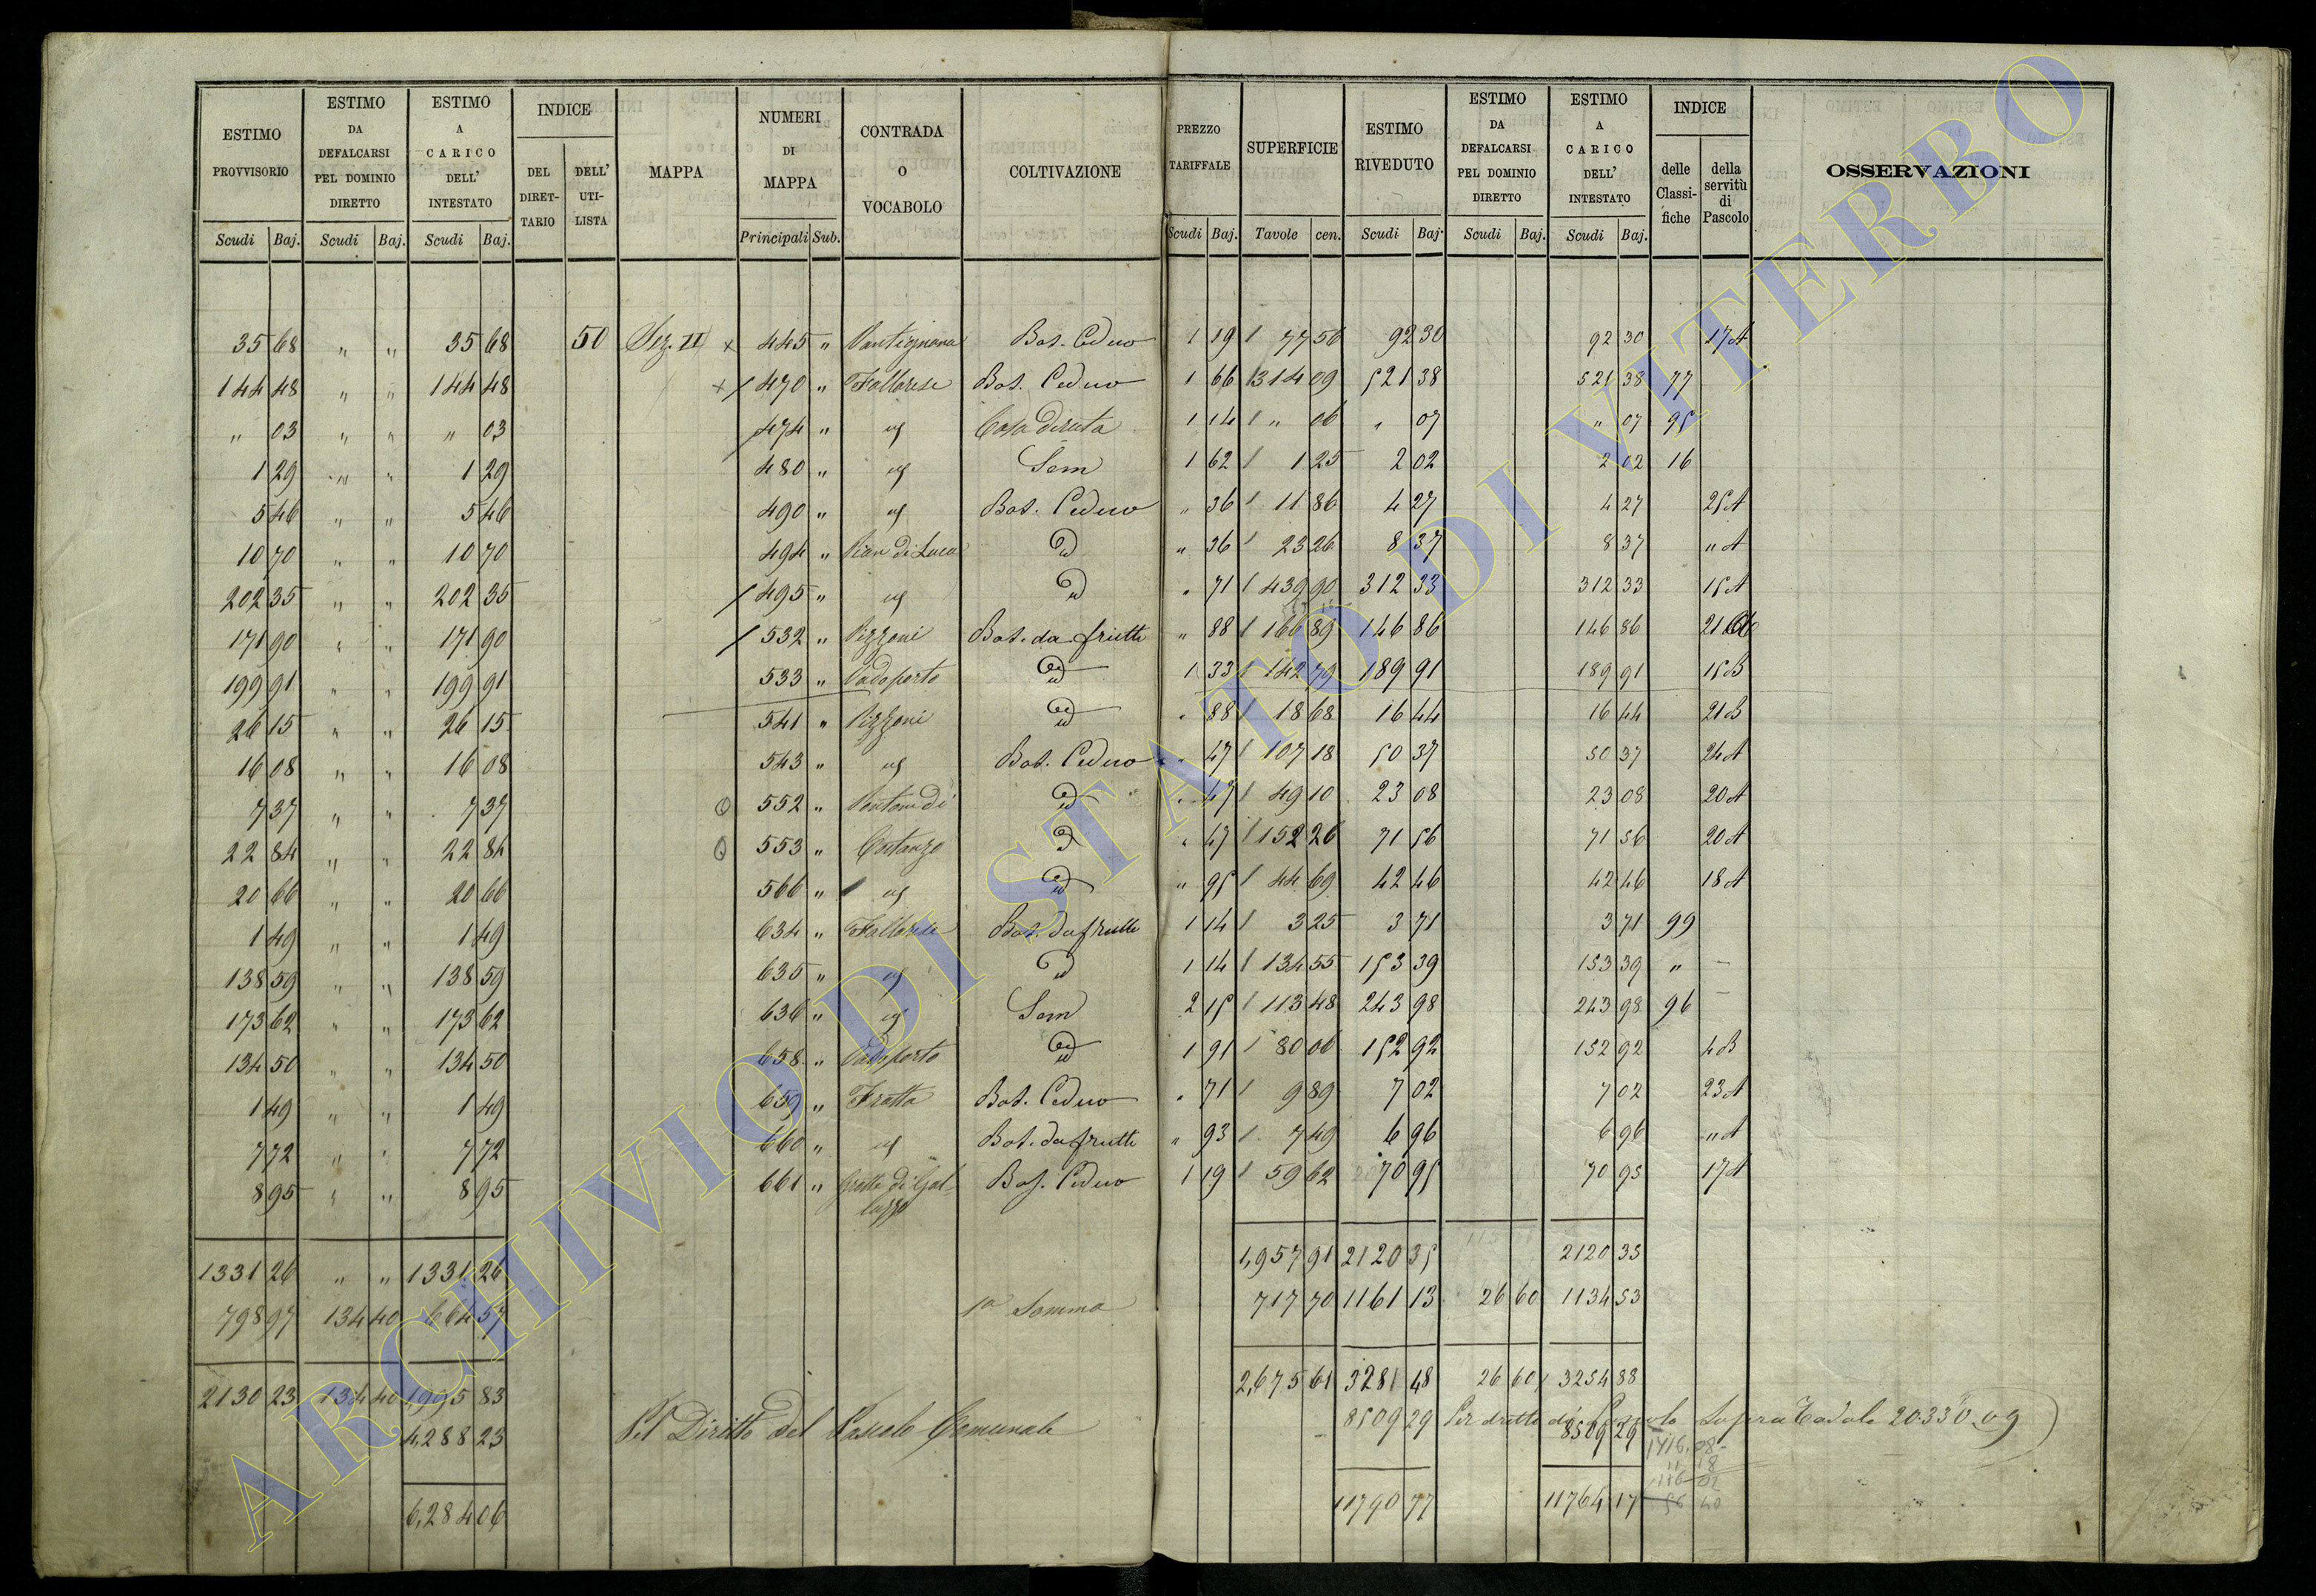 ESTIMO PROVVISORIO | ESTIMO DA DEFALCARSI PEL DOMINIO DIRETTO | ESTIMO A CARICO DELL' INTESTATO | INDICE DEL DIRET-TARIO | DELL' UTI-LISTA | MAPPA | NUMERI DI MAPPA | CONTRADA O VOCABOLO | COLTIVAZIONE | PREZZO TARIFFALE | SUPERFICIE | ESTIMO RIVEDUTO | ESTIMO DA DEFALCARSI PEL DOMINIO DIRETTO | ESTIMO A CARICO DELL' INTESTATO | INDICE delle Classi-fiche | della servitù di Pascolo | OSSERVAZIONI
Scudi Baj. | Scudi Baj. | Scudi Baj. | Principali Sub. | Scudi Baj. | Tavole cen. | Scudi Baj. | Scudi Baj. | Scudi Baj.
35 68 " " 35 68 50 Sez. II 445 " Vantignana Bos. Ceduo 1 19 77 56 92 30 92 30 17 A
144 48 " " 144 48 470 " Fallarese Bos. Ceduo 1 66 314 09 521 38 521 38 77
" 03 " " " 03 474 " Casa diruta 1 14 " 06 " 07 " 07 95
1 29 " " 1 29 480 " Sem 1 62 1 25 2 02 2 02 16
5 46 " " 5 46 490 " Bos. Ceduo " 36 11 86 4 27 4 27 25 A
10 70 " " 10 70 494 " Pian di Luca " 36 23 26 8 37 8 37 " A
202 35 " " 202 35 495 " " 71 439 90 312 33 312 33 15 A
171 90 " " 171 90 532 " Pizzoni Bos. da frutti " 88 166 89 146 86 146 86 21
199 91 " " 199 91 533 " Vadoporto 1 33 142 79 189 91 189 91 15 B
26 15 " " 26 15 541 " Pizzoni " 88 18 68 16 44 16 44 21 B
16 08 " " 16 08 543 " Bos. Ceduo " 47 107 18 50 37 50 37 24 A
7 37 " " 7 37 552 " di " 47 49 10 23 08 23 08 20 A
22 84 " " 22 84 553 " Costanzo " 47 152 26 71 56 71 56 20 A
20 66 " " 20 66 566 " " 95 44 69 42 46 42 46 18 A
1 49 " " 1 49 634 " Fallarese Bos. da frutti 1 14 3 25 3 71 3 71 99
138 59 " " 138 59 635 " 1 14 134 55 153 39 153 39 " -
173 62 " " 173 62 636 " Sem 2 15 113 48 243 98 243 98 96 -
134 50 " " 134 50 658 " Vadoporto 1 91 80 06 152 92 152 92 4 B
1 49 " " 1 49 659 " Fratta Bos. Ceduo " 71 9 89 7 02 7 02 23 A
7 72 " " 7 72 660 " Bos. da frutti " 93 7 49 6 96 6 96 " A
8 95 " " 8 95 661 " Grotte di Gal-luzzo Bos. Ceduo 1 19 59 62 70 95 70 95 17 A
1331 26 " " 1331 26 1,957 91 2120 35 2120 35
798 97 134 40 664 57 1a Somma 717 70 1161 13 26 60 1134 53
2130 23 134 40 1,995 83 2,675 61 3281 48 26 60 3254 88
4,288 23 Pel Diritto del Pascolo Comunale 8509 29 Per dritto di Pascolo sopra Tavole 20330,09
8509 29
6,284 06 11790 77 11764 17
ARCHIVIO DI STATO DI VITERBO